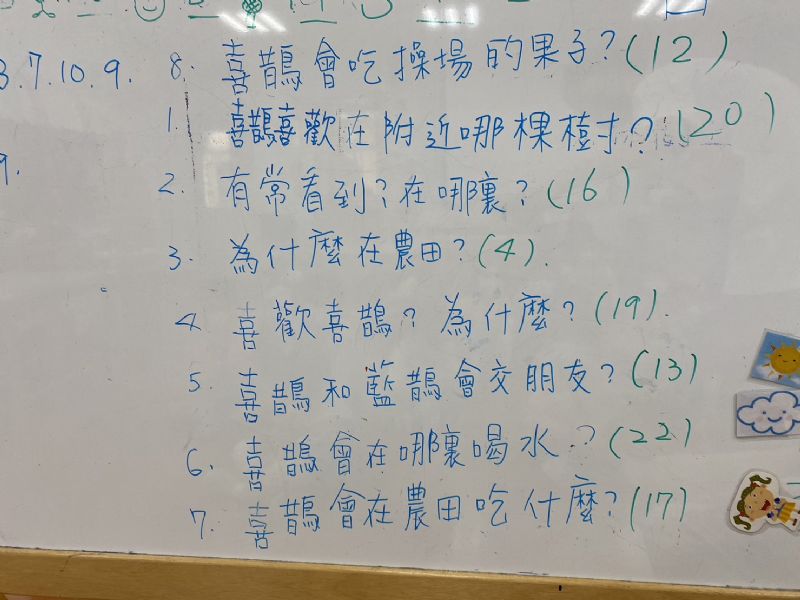 3.7.10.9.
8. 喜鵲會吃操場的果子?(12)
1. 喜鵲喜歡在附近哪棵樹?(20)
9.
2. 有常看到?在哪裏?(16)
3. 為什麼在農田?(4).
4. 喜歡喜鵲?為什麼?(19).
5. 喜鵲和藍鵲會交朋友?(13)
6. 喜鵲會在哪裏喝水?(22)
7. 喜鵲會在農田吃什麼?(17)